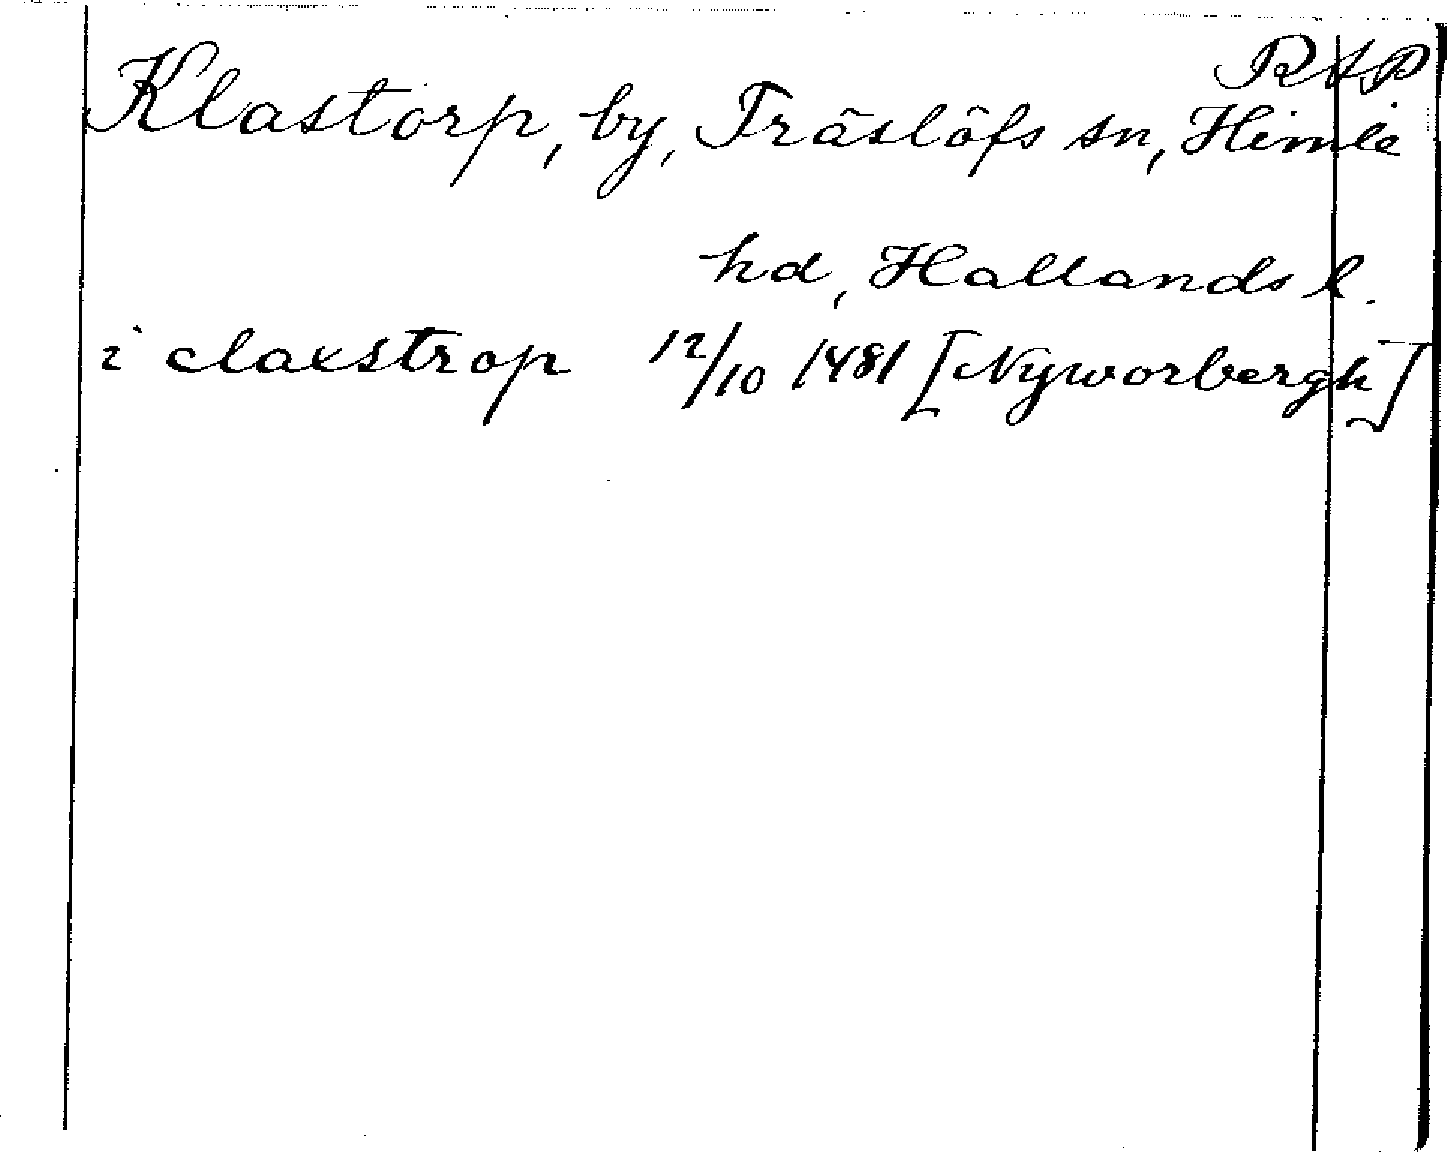 RAP
Klastorp, by, Träslöfs sn, Himle
hd, Hallands l.
i claxstrop 12/10 1481 [Nyworbergh]